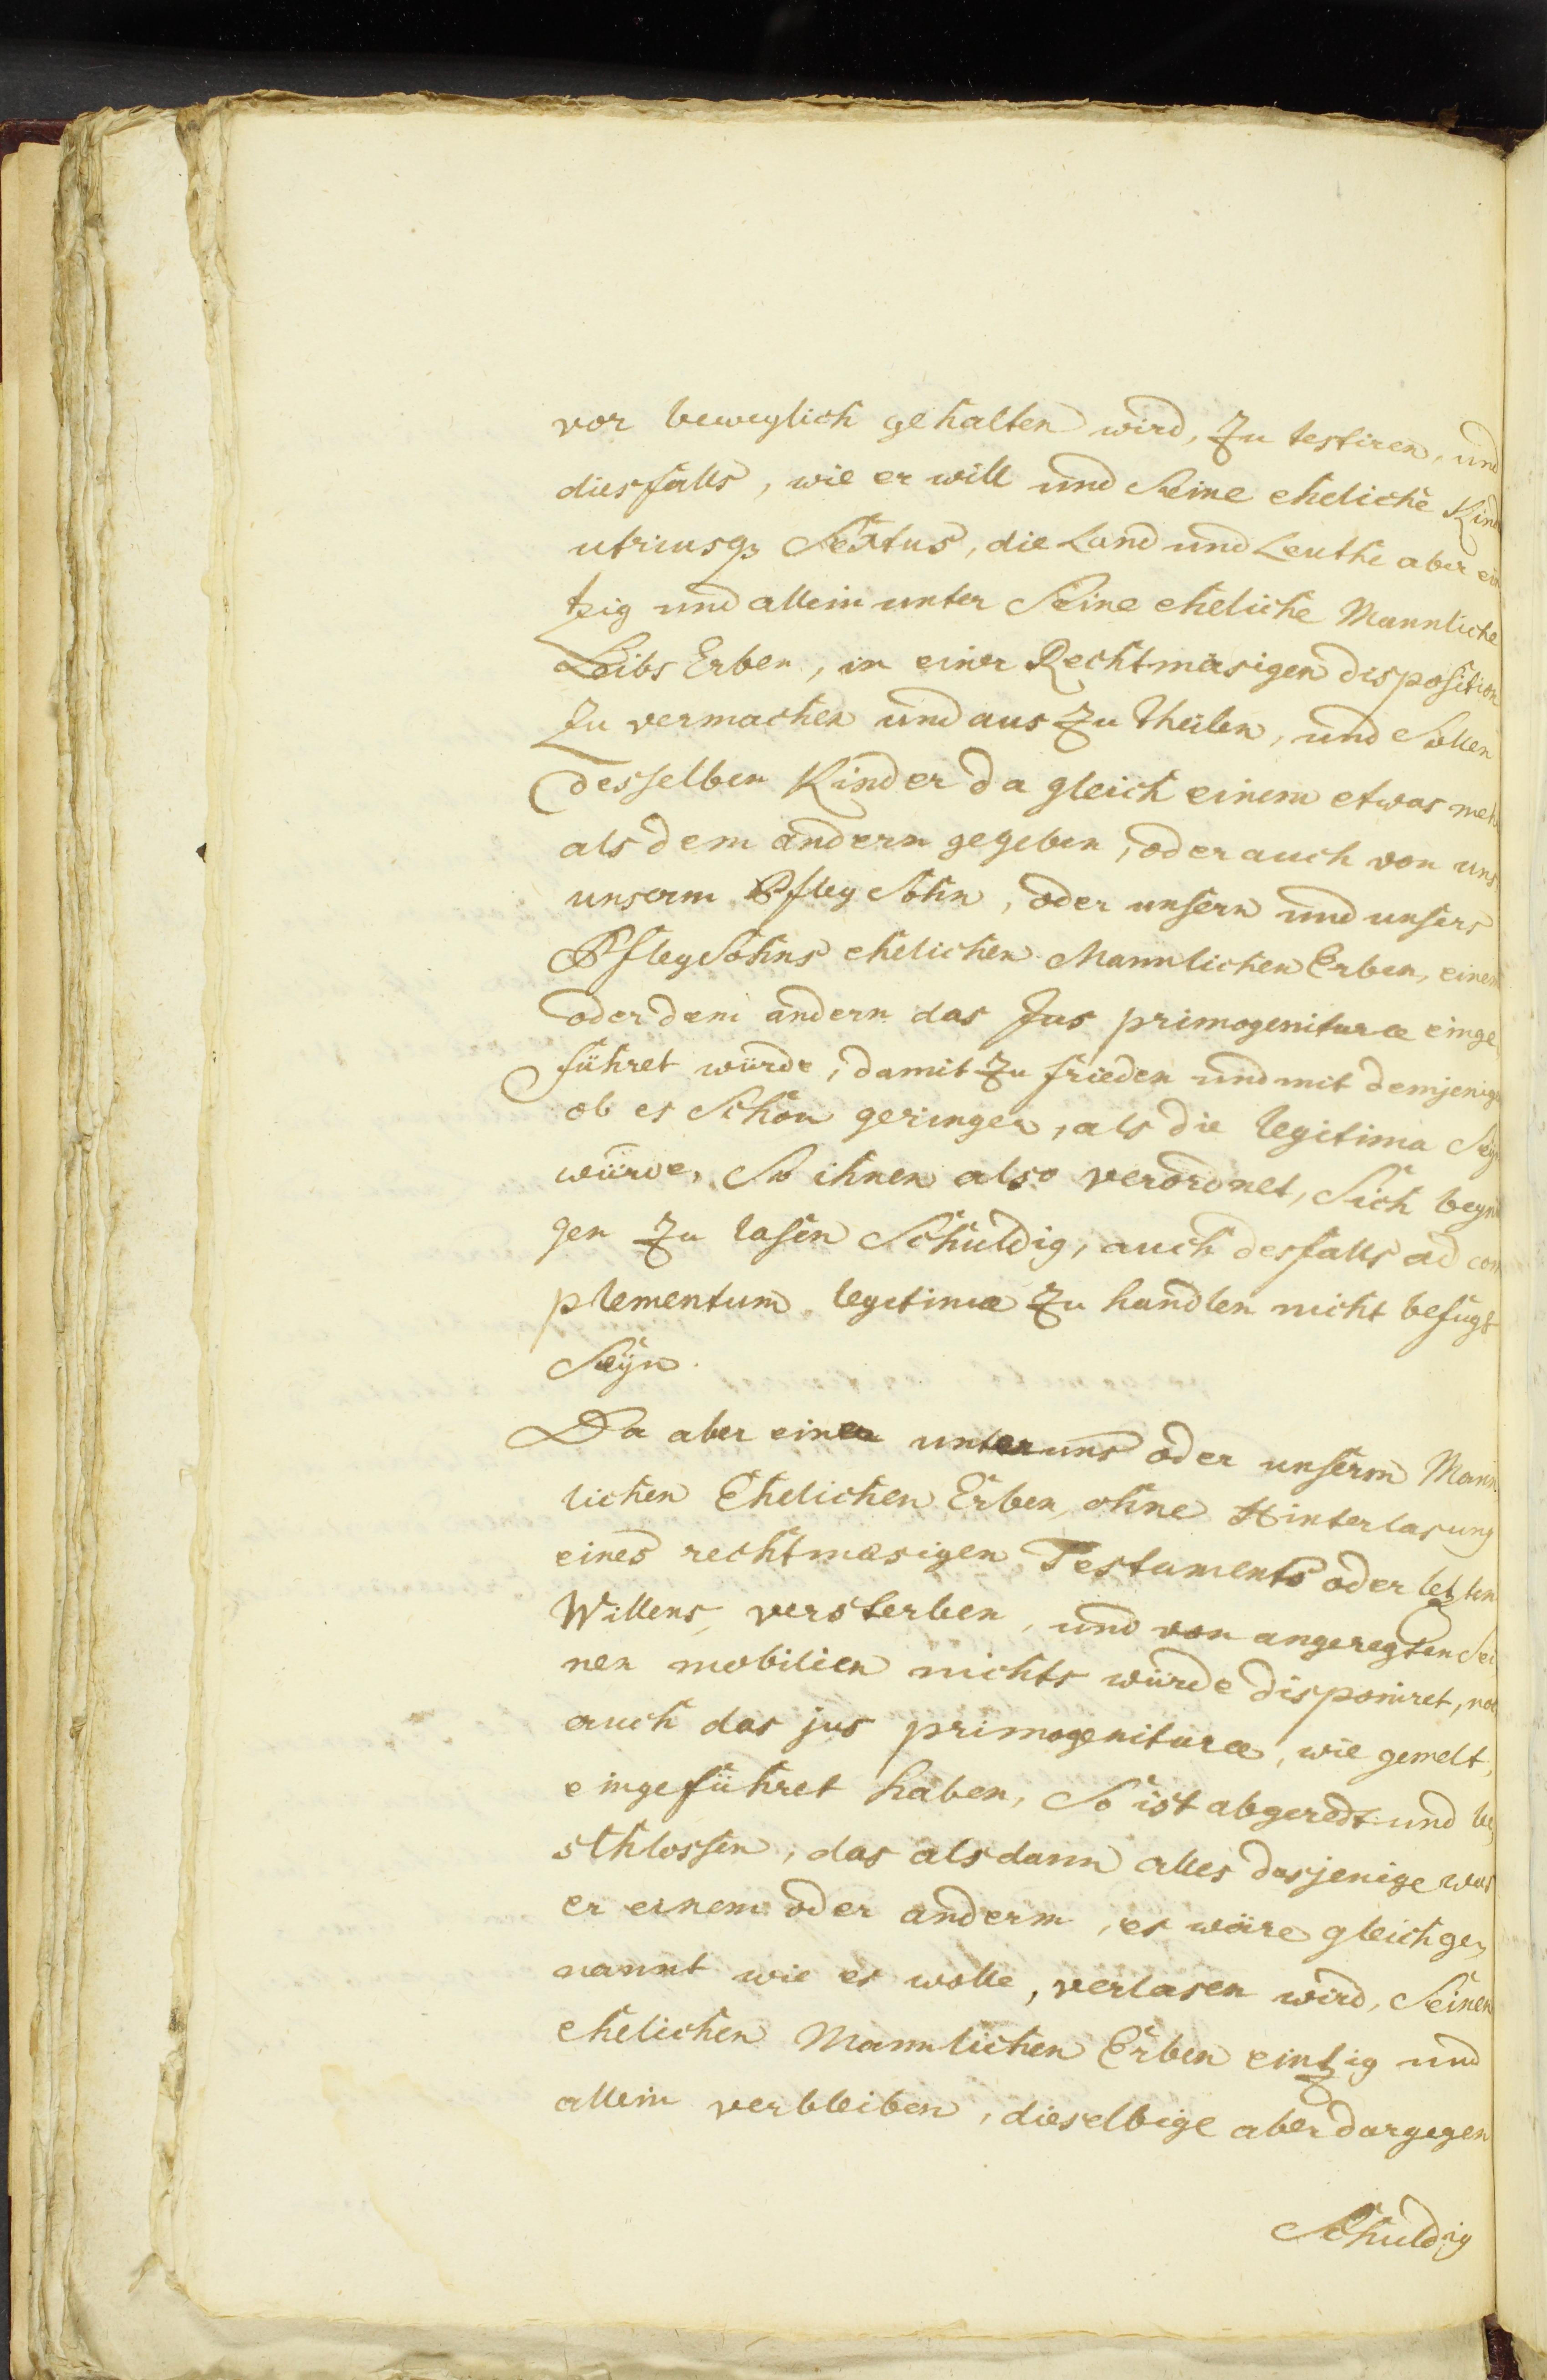 vor beweglich gehalten wird, Zu testiren, und
diesfalls, wie er will und Seine eheliche Kind
utriusq3 Sexus, die Land und Leuthe aber ein
tzig und allein unter Seine eheliche Mannliche
Leibs Erben, in einer Rechtmäsigen disposition
Zu vermachen und aus Zu theilen, und Sollen
desselben Kinder da gleich einem etwas meh
als dem andern gegeben, oder auch von uns,
unserm Pfleg Sohn, oder unsern und unsers
Pfleg Sohns ehelichen Mannlichen Erben, einem
oder dem andern das Jus primogenituræ einge
führet würde, damit Zu frieden und mit demjenig
ob es Schon geringer, als die legitima Sey
würde, So ihnen also verordnet, Sich begnü
gen Zu lasen Schuldig, auch desfalls ad com
plementum legitimæ Zu handlen nicht befugt
Seÿn.
Da aber einer unter uns oder unserm Mann
lichen Ehelichen Erben, ohne Hinterlasung
eines rechtmäsigen Testaments oder letzten
Willens, versterben, und von angeregten Sei
nen mobilien nichts würde disponiret, noc
auch das jus primogenituræ, wie gemelt,
eingeführet haben, So ist abgeredt und be,
schlossen, das alsdann alles dasjenige was
er einem oder anderm, es wäre gleich ge,
nannt wie es wolle, verlasen wird, Seinen
ehelichen Mannlichen Erben eintzig und
allein verbleiben, dieselbige aber dargegen
Schuldig